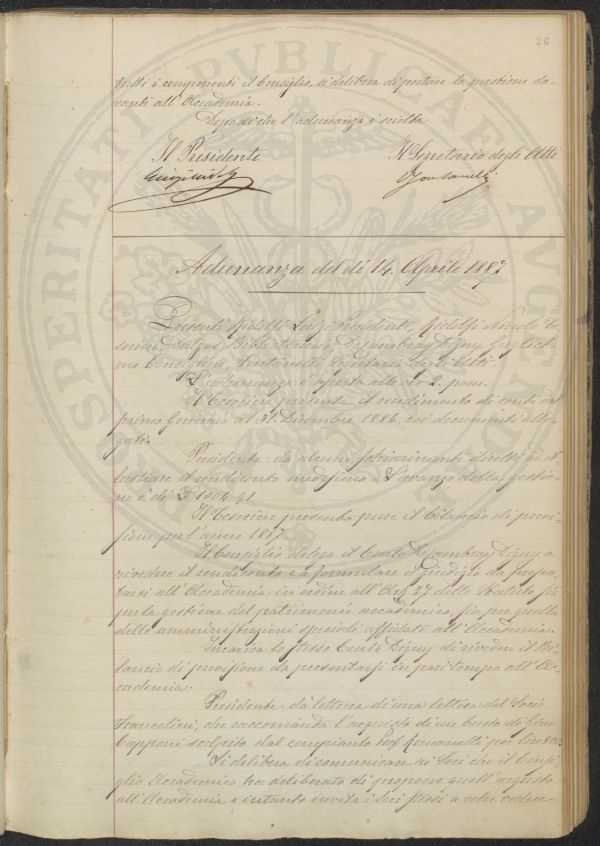 36
tutti i componenti il Consiglio, si delibera di portare la questione da-
vanti all'Accademia.
Dopo di che l'adunanza è sciolta
Il Presidente
Il Segretario degli Atti
Luigi Ridolfi
Fontanelli
Adunanza del dì 14. Aprile 1887
Presenti Ridolfi Luigi Presidente, Ridolfi Niccolò Te-
soriere, Dalgas Bibliotecario, Digny Gugliel-
mo Consigliere, Fontanelli Segretario degli Atti.
L'adunanza è aperta alle ore 2. pom.
Il Tesoriere presenta il rendimento di conti dal
primo Gennaio al 31. Dicembre 1886. coi documenti alle-
gati.
Presidente - dà alcuni schiarimenti diretti ad il-
lustrare il rendiconto medesimo. L'avanzo della gestio-
ne è di
Il Tesoriere presenta pure il bilancio di previ-
sione per l'anno 1887.
Il Consiglio delega il Conte Digny a
rivedere il rendiconto e a formulare il giudizio da presen-
tarsi all'Accademia in ordine all'Art. 27 dello Statuto sia
per la gestione del patrimonio accademico, sia per quella
delle amministrazioni speciali affidate all'Accademia.
Incarica lo stesso Conte Digny di rivedere il Bi-
lancio di previsione da presentarsi in pari tempo all'Ac-
cademia.
Presidente - dà lettura di una lettera del Socio
che raccomanda l'acquisto di un busto di Gino
Capponi scolpito dal compianto Prof. per Lire 800.
Si delibera di comunicare ai Soci che il Consi-
glio Accademico ha deliberato di proporre quell'acquisto
all'Accademia e intanto invita i Soci stessi a voler vedere